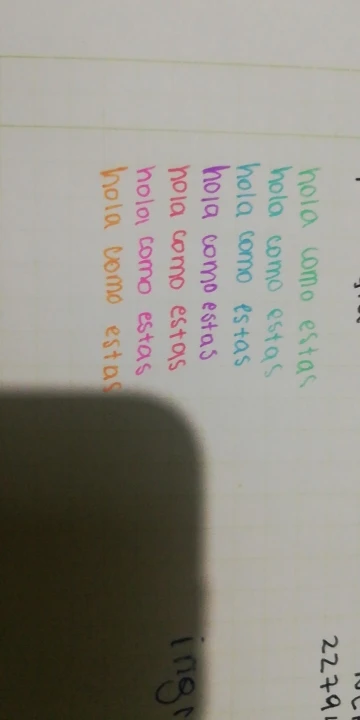 hola como estas
hola como estas
hola como estas
hola como estas
hola como estas
hola como estas
hola como estas